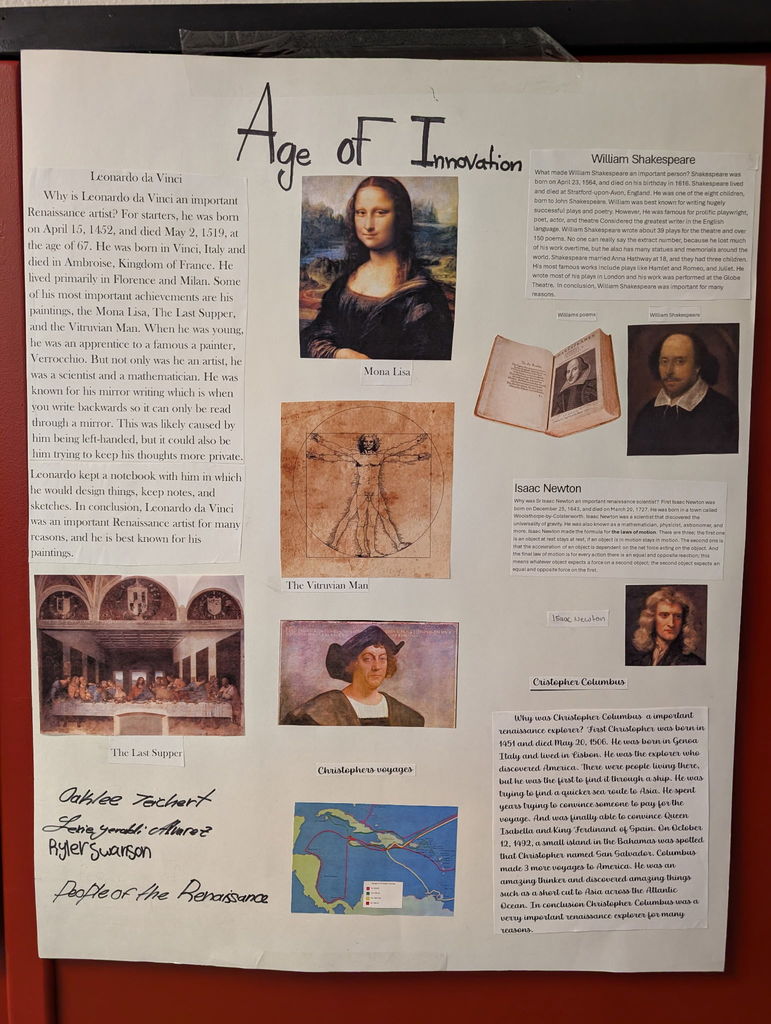 Age of Innovation
Leonardo da Vinci
Why is Leonardo da Vinci an important
Renaissance artist? For starters, he was born
on April 15, 1452, and died May 2, 1519, at
the age of 67. He was born in Vinci, Italy and
died in Ambroise, Kingdom of France. He
lived primarily in Florence and Milan. Some
of his most important achievements are his
paintings, the Mona Lisa, The Last Supper,
and the Vitruvian Man. When he was young,
he was an apprentice to a famous a painter,
Verrocchio. But not only was he an artist, he
was a scientist and a mathematician. He was
known for his mirror writing which is when
you write backwards so it can only be read
through a mirror. This was likely caused by
him being left-handed, but it could also be
him trying to keep his thoughts more private.
Leonardo kept a notebook with him in which
he would design things, keep notes, and
sketches. In conclusion, Leonardo da Vinci
was an important Renaissance artist for many
reasons, and he is best known for his
paintings.
The Last Supper
Oaklee Teichert
Alvarez
Ryler Swanson
People of the Renaissance
Mona Lisa
The Vitruvian Man
Christophers voyages
William Shakespeare
What made William Shakespeare an important person? Shakespeare was
born on April 23, 1564, and died on his birthday in 1616. Shakespeare lived
and died at Stratford-upon-Avon, England. He was one of the eight children,
born to John Shakespeare. William was best known for writing hugely
successful plays and poetry. However, He was famous for prolific playwright,
poet, actor, and theatre Considered the greatest writer in the English
language. William Shakespeare wrote about 39 plays for the theatre and over
150 poems. No one can really say the extract number, because he lost much
of his work overtime, but he also has many statues and memorials around the
world. Shakespeare married Anna Hathway at 18, and they had three children.
His most famous works include plays like Hamlet and Romeo, and Juliet. He
wrote most of his plays in London and his work was performed at the Globe
Theatre. In conclusion, William Shakespeare was important for many
reasons.
Williams poems
William Shakespeare
Isaac Newton
Why was Sir Isaac Newton an important renaissance scientist? First Isaac Newton was
born on December 25, 1643, and died on March 20, 1727. He was born in a town called
Woolsthorpe-by-Colsterworth. Isaac Newton was a scientist that discovered the
universality of gravity. He was also known as a mathematician, physicist, astronomer, and
more. Isaac Newton made the formula for the laws of motion. There are three; the first one
is an object at rest stays at rest, if an object is in motion stays in motion. The second one is
that the acceleration of an object is dependent on the net force acting on the object. And
the final law of motion is for every action there is an equal and opposite reaction; this
means whatever object expects a force on a second object; the second object expects an
equal and opposite force on the first.
Isaac Newton
Cristopher Columbus
Why was Christopher Columbus a important
renaissance explorer? First Christopher was born in
1451 and died May 20, 1506. He was born in Genoa
Italy and lived in Lisbon. He was the explorer who
discovered America. There were people living there,
but he was the first to find it through a ship. He was
trying to find a quicker sea route to Asia. He spent
years trying to convince someone to pay for the
voyage. And was finally able to convince Queen
Isabella and King Ferdinand of Spain. On October
12, 1492, a small island in the Bahamas was spotted
that Christopher named San Salvador. Columbus
made 3 more voyages to America. He was an
amazing thinker and discovered amazing things
such as a short cut to Asia across the Atlantic
Ocean. In conclusion Christopher Columbus was a
verry important renaissance explorer for many
reasons.